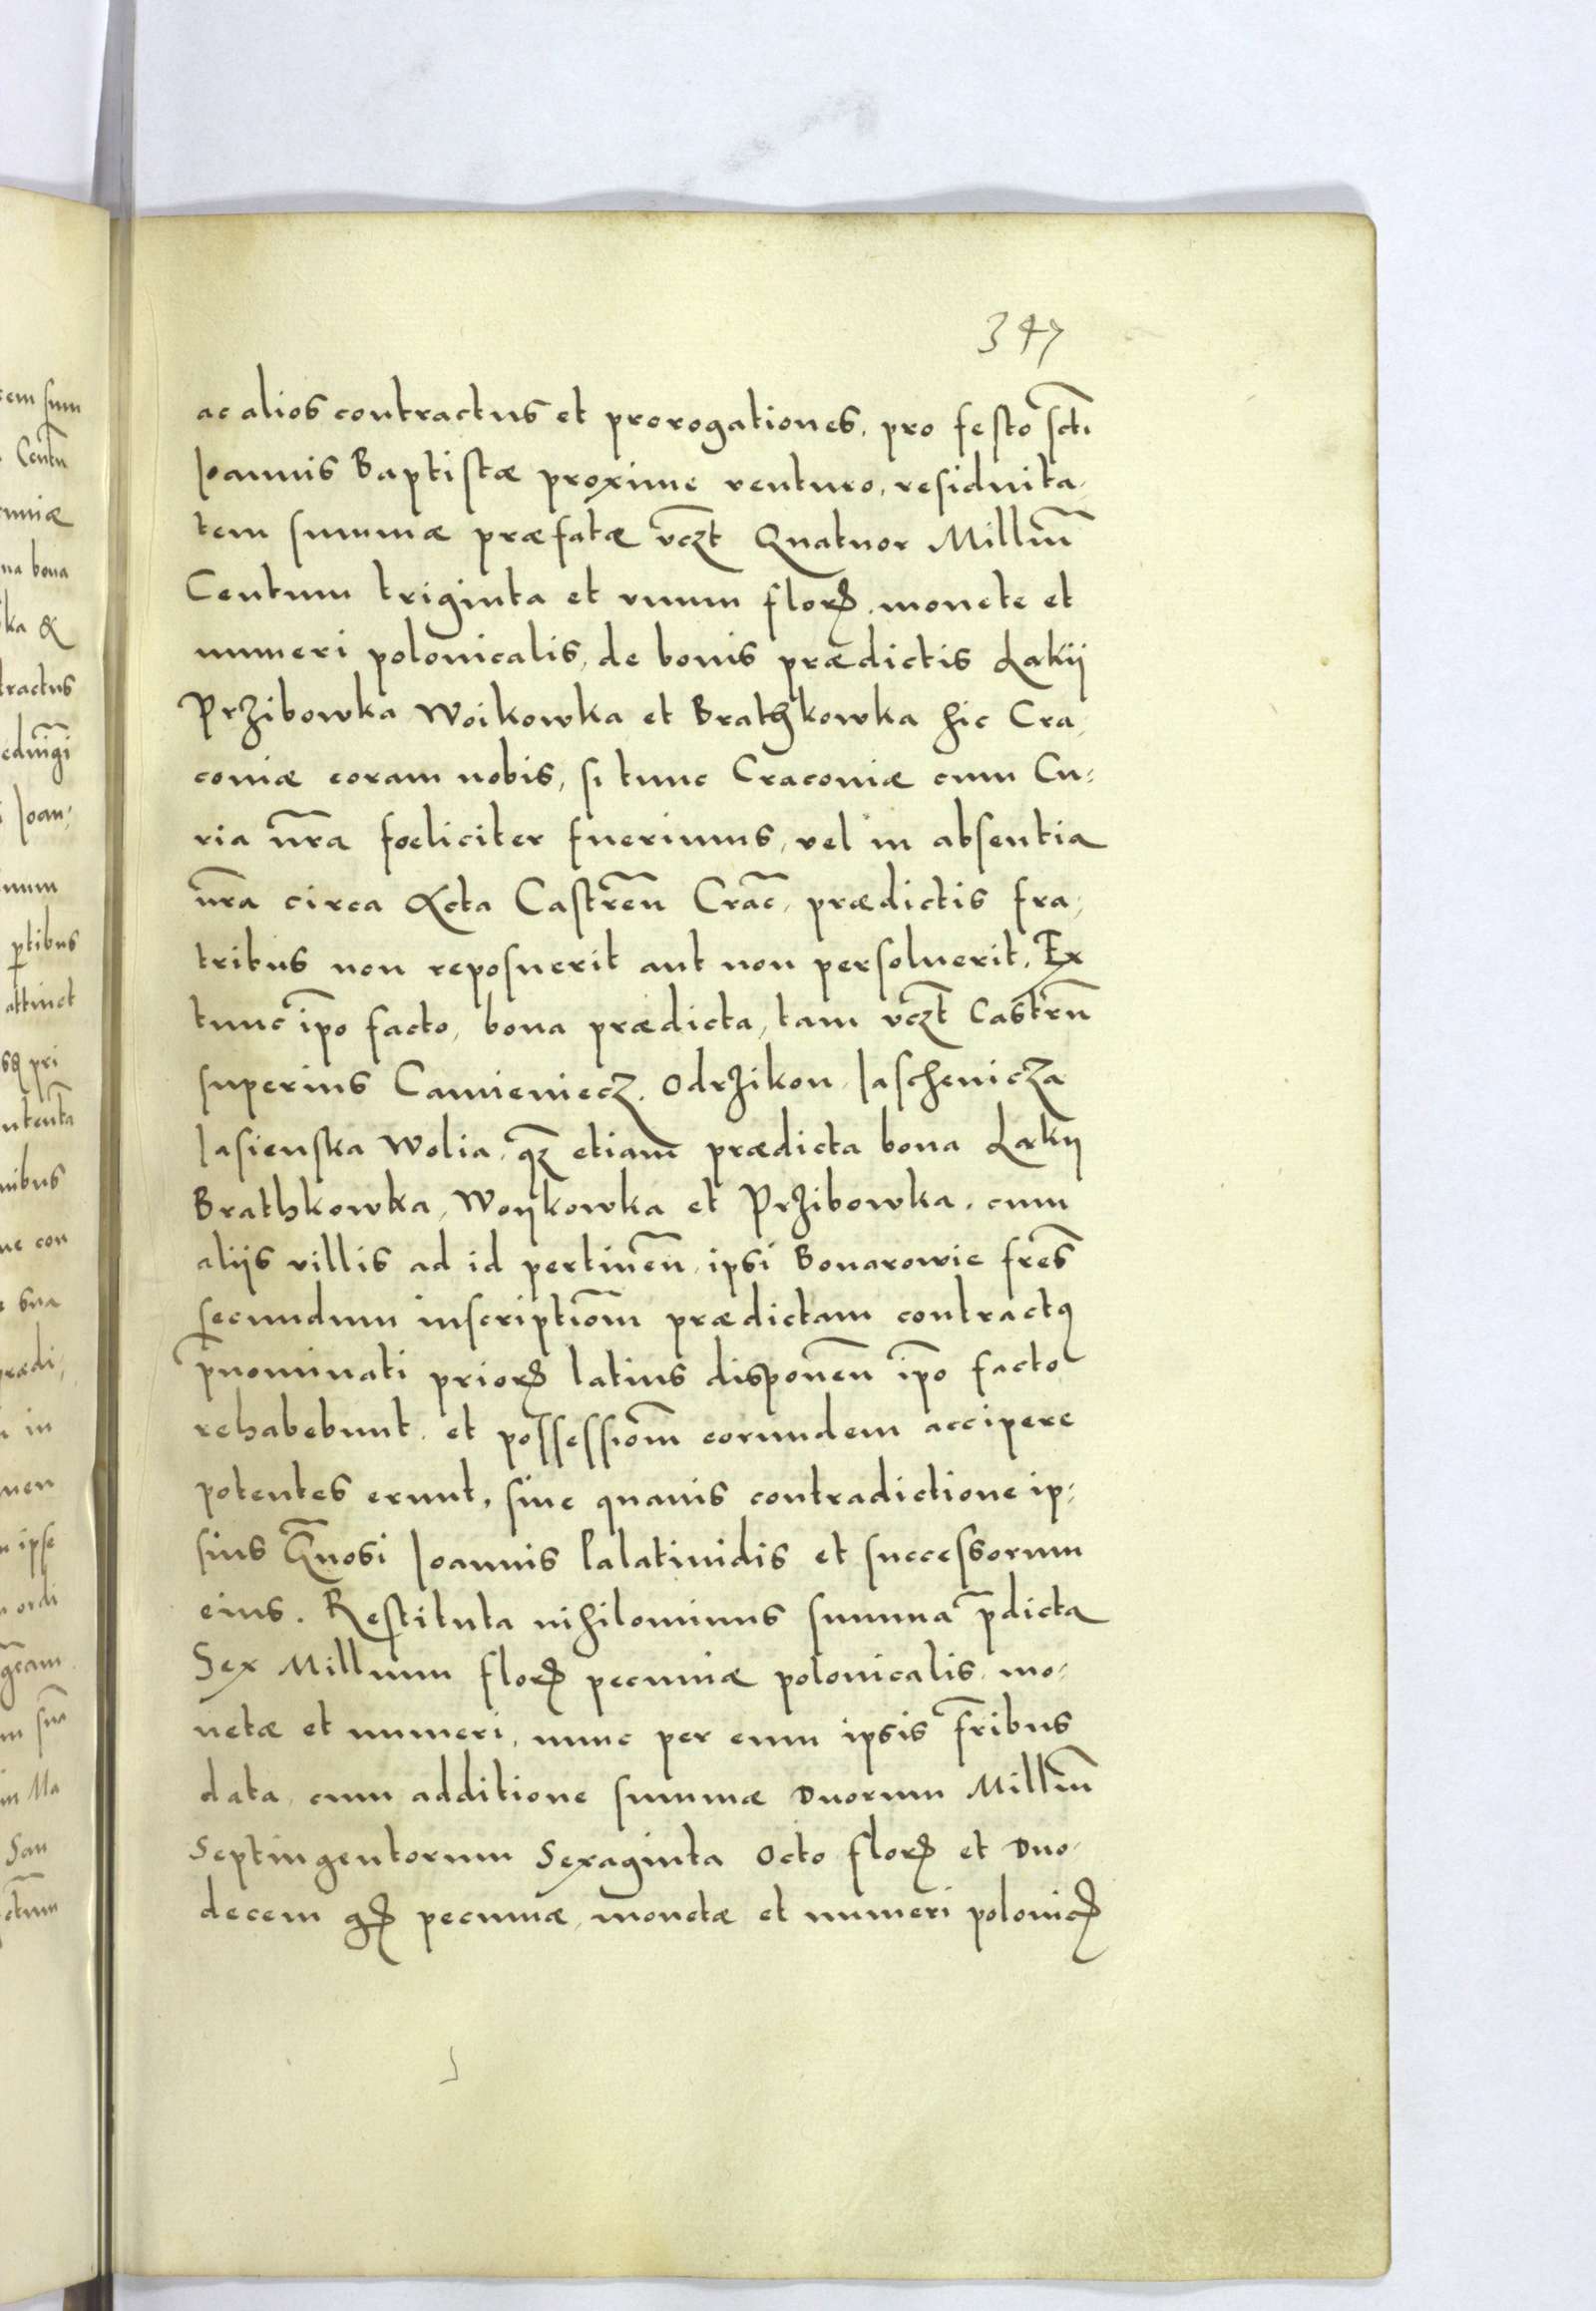 347
ac alios contractus et prorogationes, pro festo scti
Joannis Baptistæ proxime venturo, residuita-
tem summæ præfatæ vczt Quatuor Millm̃
Centum triginta et vnum floꝝ. monete et
numeri polonicalis, de bonis prædictis Lakij
Przibowka Woikowka et Brathkowka hic Cra-
coniæ coram nobis, si tunc Craconiæ cum Cu-
ria nr̃a fœliciter fuerimus, vel in absentia
nr̃a circa Acta Castren̄ Crac̄, prædictis fra-
tribus non reposuerit aut non persoluerit, Ex
tunc ip̃o facto, bona prædicta, tam vczt Castrn̄
superius Camieniecz, Odrzikon, Jaschenicza
Jasienska Wolia, qz etiam prædicta bona Lakij
Brathkowka, Woykowka et Przibowka, cum
aliis villis ad id pertinen̄, ipsi Bonarowie fres̄
secundum inscriptiom̄ prædictam contractꝰ
p̄nominati prioꝝ latius disponen̄ ip̃o facto
rehabebunt, et possessiom̄ eorundem accipere
potentes erunt, sine quauis contradictione ip-
sius Gn̄osi Joannis Palatinidis et successorum
eius. Restituta nihilominus summa p̄dicta
Sex Millium floꝝ pecuniæ polonicalis, mo-
netæ et numeri, nunc per eum ipsis fr̄ibus
data, cum additione summæ Duorum Millm̃
Septingentorum Sexaginta Octo floꝝ et Duo-
decem gꝝ pecuniæ, monetæ et numeri polonicꝝ
cem sum
Centu
uniæ
na bona
ka &
tractus
Joan-
num
ꝑtibus
attinet
pri
nibus
ne con
sua
rædi-
in
men
ipse
ordi
in Ma
San
ctum